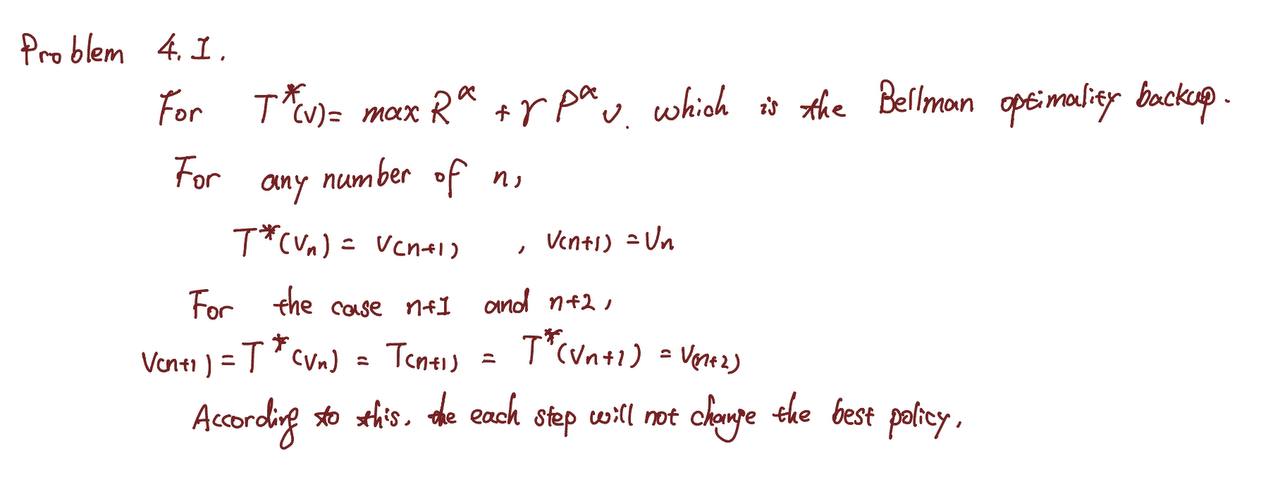 Problem 4.1.
For T*(v)= max R^α + γ P^α v. which is the Bellman optimality backup.
For any number of n,
T*(Vn) = V(n+1) , V(n+1) = Un
For the case n+1 and n+2,
V(n+1) = T*(Vn) = T(n+1) = T*(Vn+1) = V(n+2)
According to this, the each step will not change the best policy.